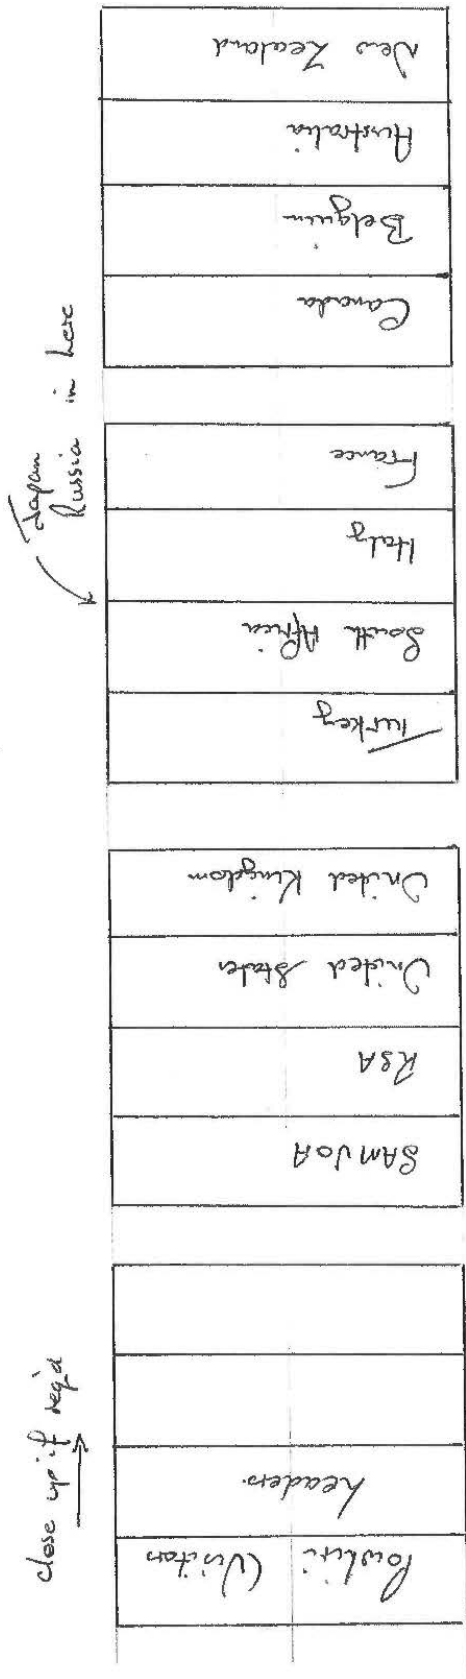 New Zealand
Australia
Belguim
Canada
Japan
Russia in here
France
Italy
South Africa
Turkey
United Kingdom
United States
RSA
SAMVOA
close up if req'd
Leaders.
Powhiri (Visitors